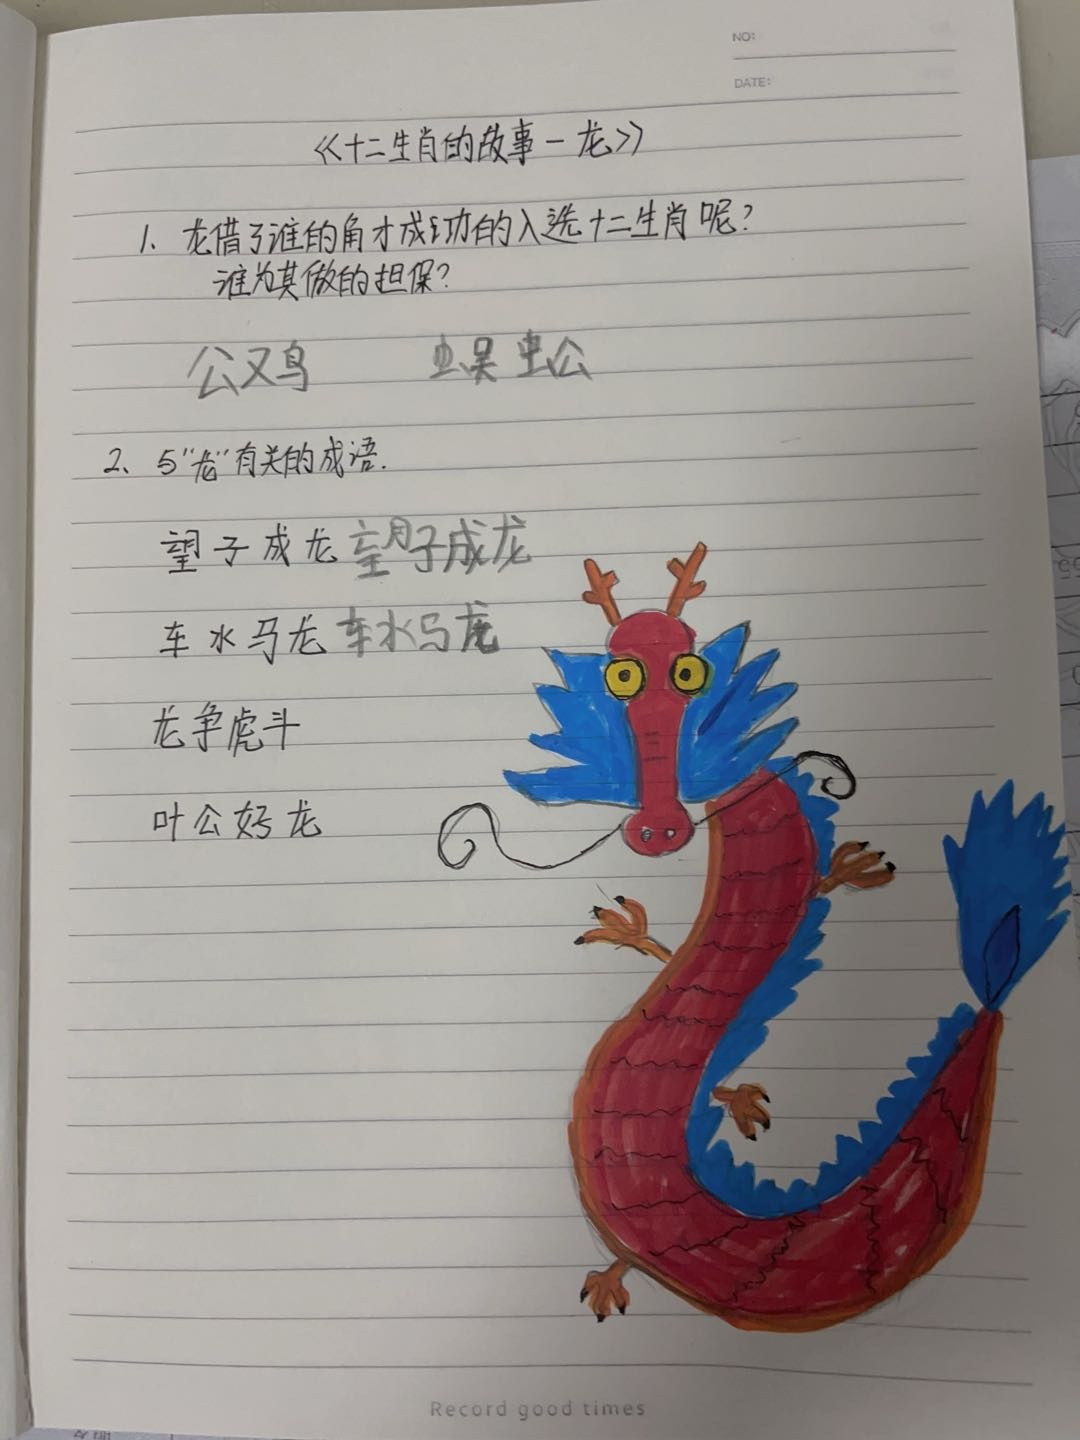 NO:
DATE:
《十二生肖的故事－龙》
1、龙借了谁的角才成功的入选十二生肖呢？
谁为其做的担保？
公又鸟 虫吴虫公
2、与“龙”有关的成语.
望子成龙 望子成龙
车水马龙 车水马龙
龙争虎斗
叶公好龙
Record good times